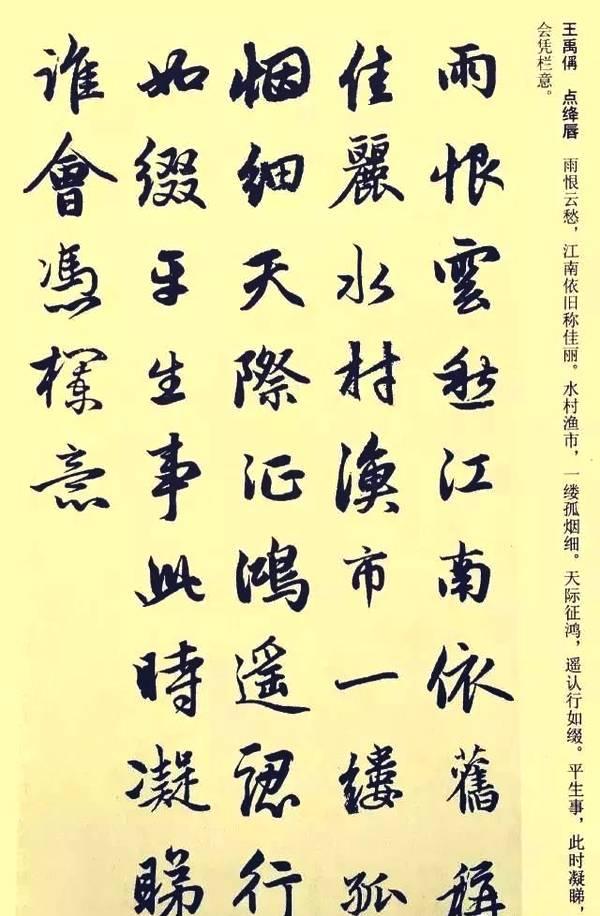 王禹偁　点绛唇　雨恨云愁，江南依旧称佳丽。水村渔市，一缕孤烟细。天际征鸿，遥认行如缀。平生事，此时凝睇，
会凭栏意。
雨恨雲愁江南依舊稱
佳麗水村漁市一縷孤
烟細天際征鴻遥認行
如綴平生事此時凝睇
誰會憑欄意